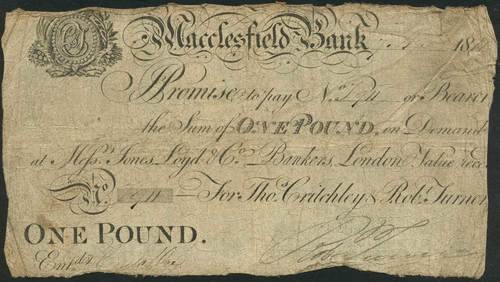 Macclesfield Bank
18
I Promise to pay or Bearer
the Sum of ONE POUND, on Demand
at Messrs. Jones, Loyd & Co. Bankers, London Value rec
No. For Thos. Critchley & Robt. Turner
ONE POUND.
Entd.